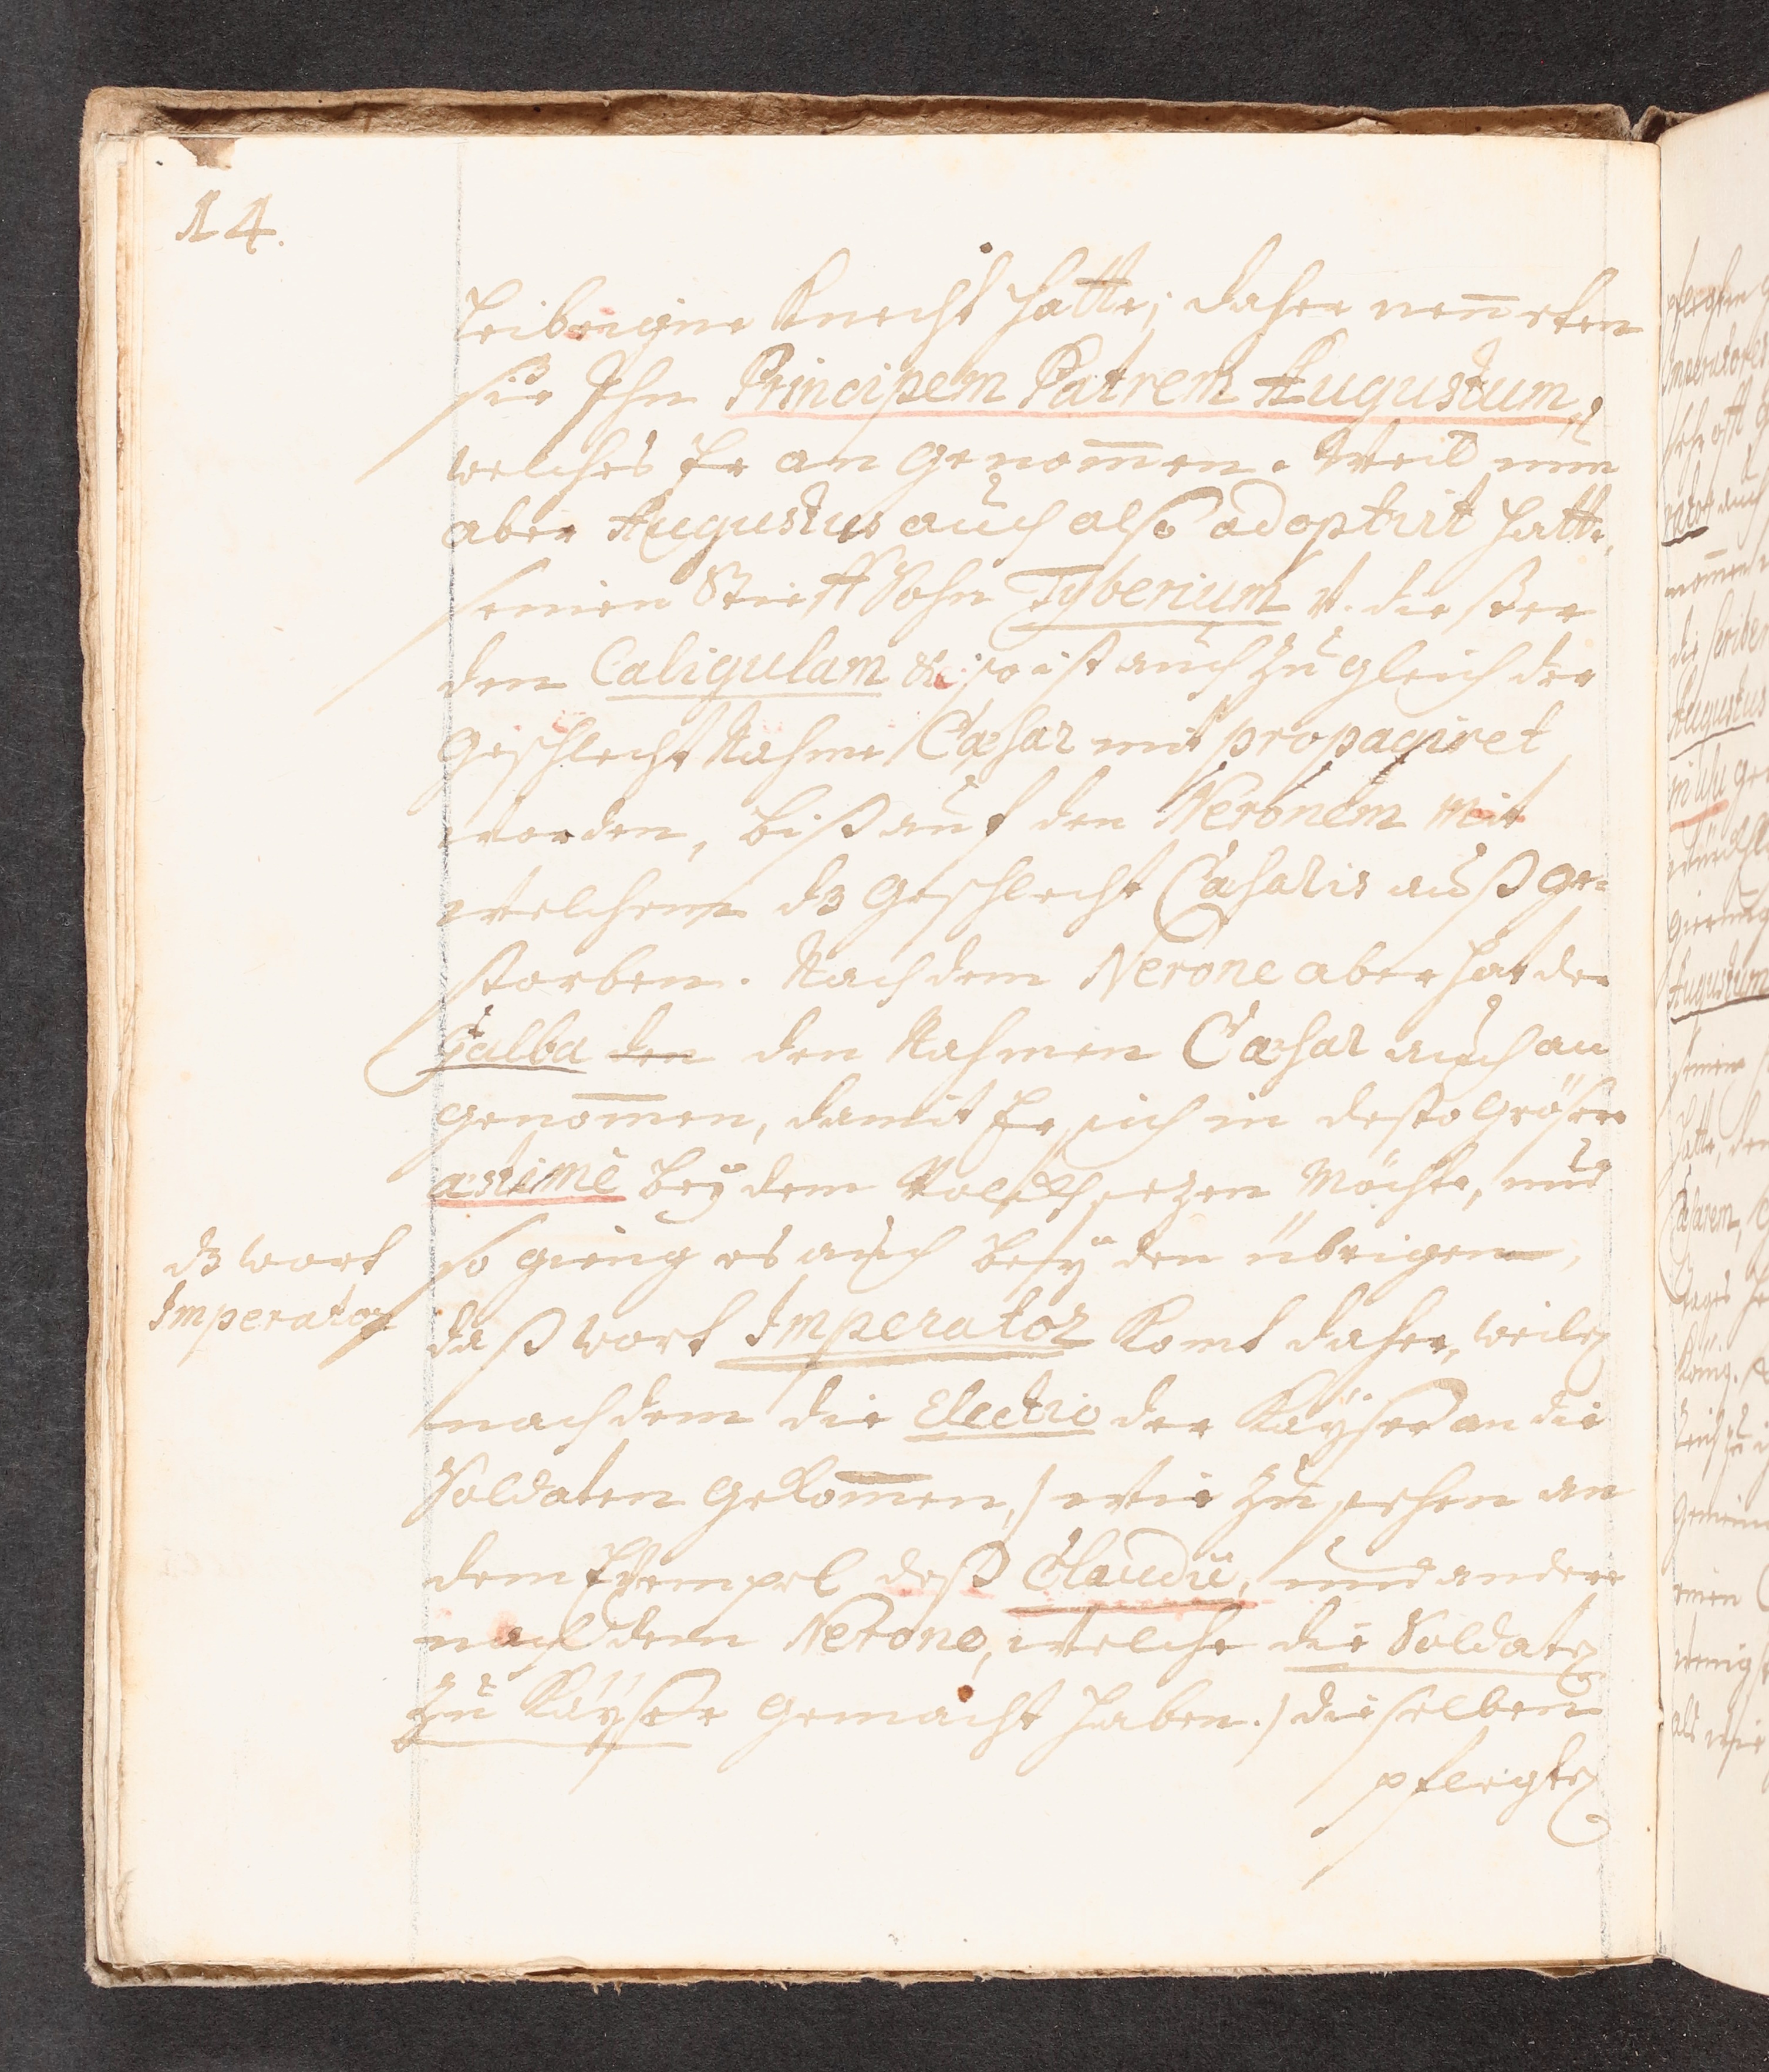 14.
Leibeigne Knecht hatte; daher nen̅eten
sie Ihn Principem Patrem Augustum,
welches Er an genom̅en. Weil nun
aber Augustus auch also adoptirt hatte,
seinen Stieff Sohn Tyberium u. dießer
den Caligulam &c; so ist auch zu gleich der
Geschlecht Nahme Cæsar mit propagiret
worden, biß auf den Neronem mit
welchem dz Geschlecht Cæsaris auß ge-
storben. Nach dem Nerone aber hat der
Galba den den Nahmen Cæsar auch an
genom̅en, damit Er sich in desto größere
æstime bey dem Volck sezen möchte, und
so gieng es auch bey den übrigen,
dz wort
Imperator
daß wort Imperator komt daher, weilen
nach dem die Electio der Kayser an die
Soldaten gekom̅en,) wie zu sehen an
dem Exempel deß Claudii, und andere
nach dem Nerone, welche die Soldaten
zu Kayser gemacht haben.) dieselben
pflegten